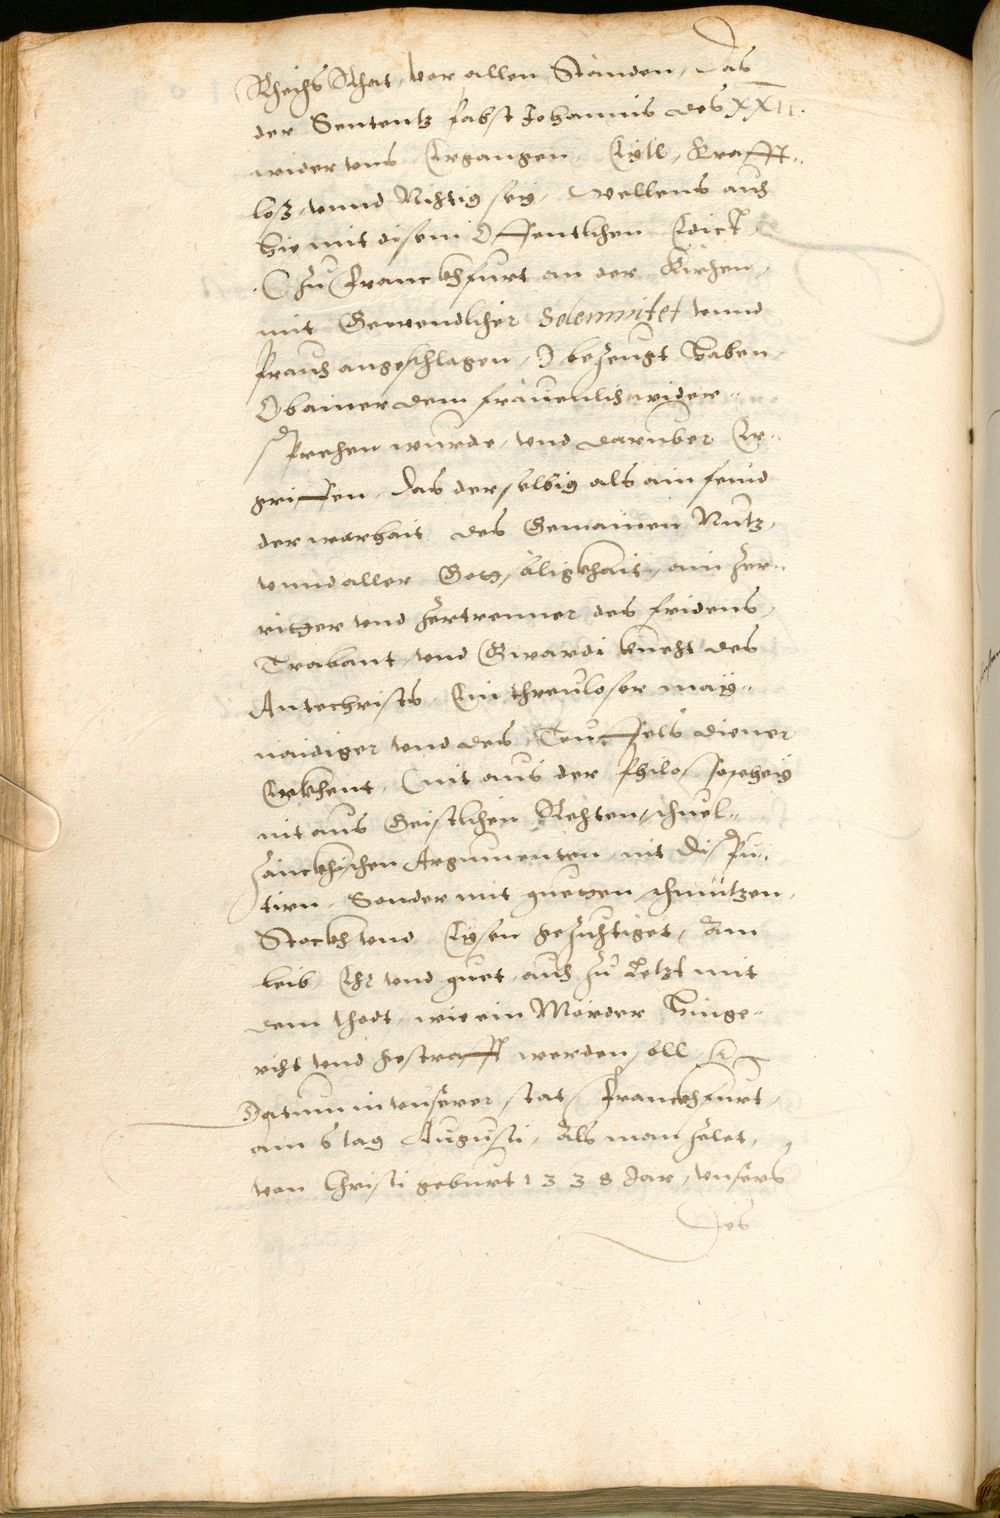 Rheichs Rhat, vor allen Stånden, das
der Sententz Pabst Johannis des XXII.
wider vnns Ergangen, Eytl, Krafft-
loß, vnnd Nichtig sey, Wellens auch
hiemit disem Offentlichen Edict,
(Zů Franckhfurt an der Kirchen,
mit Gewondlicher Solemnitet vnnd
Prauch angeschlagen,) bezeugt haben,
Ob ainer dem fråuenlich wider-
sprechen wurde, vnd daruber Er-
griffen, das derselbig als ain feind
der warhait des Gemainen Nutz,
vnnd aller Gotsåligkhait, ain Zer-
ritter vnd Zertrenner des fridens,
Trabant, vnd Gwardi knecht des
Antechrists, Ein threuloser may-
naidiger vnd des Teuffels diener
Erkhent, (nit aus der Philosopehey
nit aus Geistlichen Rechten,
zånckhischen Argumenten nit Dispu-
tirn, Sonder mit
Stockh vnd Eysen gezuchtiget, Am
leib Ehr vnd guet, auch zů Letzt mit
dem thodt, wie ein Mörder hinge-
richt vnd gestrafft werden soll,
Datum in vnserer stat Franckhfurt,
am 6 tag Augusti, Als man zelet,
von Christi geburt 1338 Jar, vnsers
des